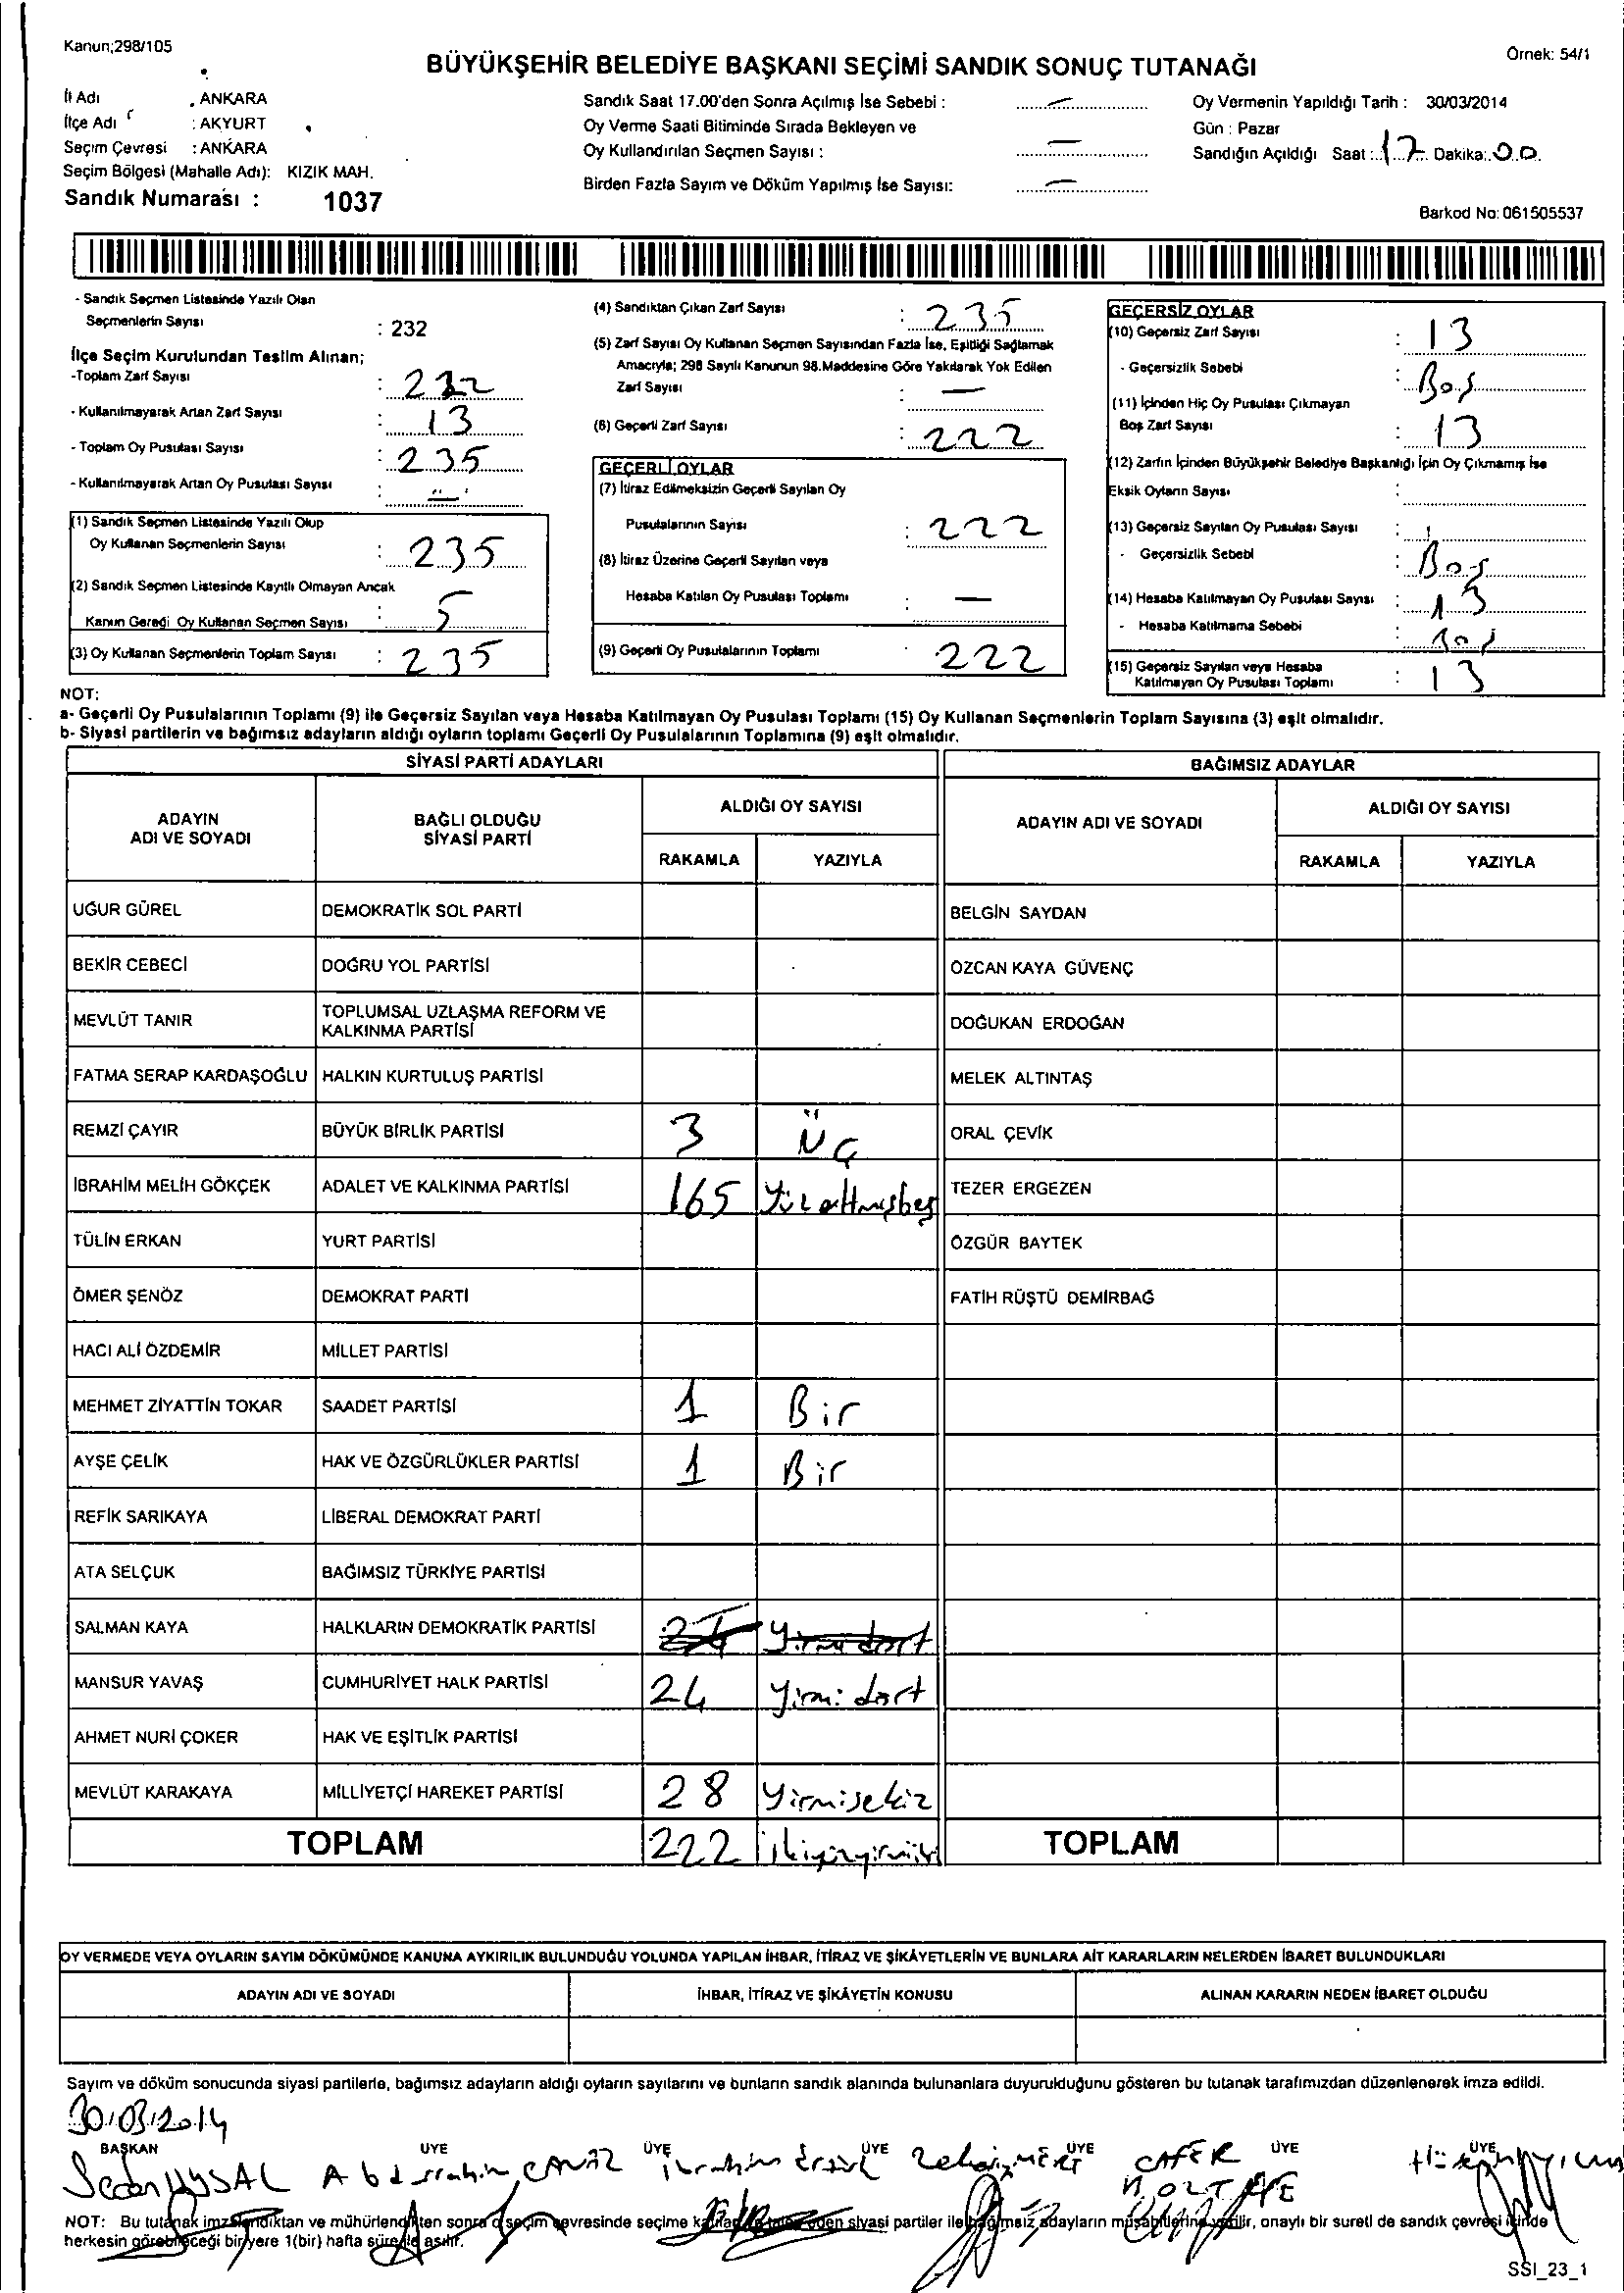 Kanun;298/105
Örnek: 54/1
BÜYÜKŞEHİR BELEDİYE BAŞKANI SEÇİMİ SANDIK SONUÇ TUTANAĞI
İl Adı : ANKARA
İlçe Adı : AKYURT
Seçim Çevresi : ANKARA
Seçim Bölgesi (Mahalle Adı): KIZIK MAH.
Sandık Numarası : 1037
Sandık Saat 17.00'den Sonra Açılmış İse Sebebi : —
Oy Verme Saati Bitiminde Sırada Bekleyen ve
Oy Kullandırılan Seçmen Sayısı : —
Birden Fazla Sayım ve Döküm Yapılmış İse Sayısı: —
Oy Vermenin Yapıldığı Tarih : 30/03/2014
Gün : Pazar
Sandığın Açıldığı Saat : 17 Dakika: 00
Barkod No: 061505537
- Sandık Seçmen Listesinde Yazılı Olan
Seçmenlerin Sayısı : 232
İlçe Seçim Kurulundan Teslim Alınan;
-Toplam Zarf Sayısı :
- Kullanılmayarak Artan Zarf Sayısı : 13
- Toplam Oy Pusulası Sayısı : 235
- Kullanılmayarak Artan Oy Pusulası Sayısı :
(1) Sandık Seçmen Listesinde Yazılı Olup
Oy Kullanan Seçmenlerin Sayısı : 235
(2) Sandık Seçmen Listesinde Kayıtlı Olmayan Ancak
Kanun Gereği Oy Kullanan Seçmen Sayısı : 5
(3) Oy Kullanan Seçmenlerin Toplam Sayısı : 235
(4) Sandıktan Çıkan Zarf Sayısı : 235
(5) Zarf Sayısı Oy Kullanan Seçmen Sayısından Fazla İse, Eşitliği Sağlamak
Amacıyla; 298 Sayılı Kanunun 98.Maddesine Göre Yakılarak Yok Edilen
Zarf Sayısı : —
(6) Geçerli Zarf Sayısı : 222
GEÇERLİ OYLAR
(7) İtiraz Edilmeksizin Geçerli Sayılan Oy
Pusulalarının Sayısı : 222
(8) İtiraz Üzerine Geçerli Sayılan veya
Hesaba Katılan Oy Pusulası Toplamı : —
(9) Geçerli Oy Pusulalarının Toplamı : 222
GEÇERSİZ OYLAR
(10) Geçersiz Zarf Sayısı : 13
- Geçersizlik Sebebi : Boş
(11) İçinden Hiç Oy Pusulası Çıkmayan
Boş Zarf Sayısı : 13
(12) Zarfın İçinden Büyükşehir Belediye Başkanlığı İçin Oy Çıkmamış İse
Eksik Oyların Sayısı :
(13) Geçersiz Sayılan Oy Pusulası Sayısı :
- Geçersizlik Sebebi : Boş
(14) Hesaba Katılmayan Oy Pusulası Sayısı : 13
- Hesaba Katılmama Sebebi : Boş
(15) Geçersiz Sayılan veya Hesaba
Katılmayan Oy Pusulası Toplamı : 13
NOT:
a- Geçerli Oy Pusulalarının Toplamı (9) ile Geçersiz Sayılan veya Hesaba Katılmayan Oy Pusulası Toplamı (15) Oy Kullanan Seçmenlerin Toplam Sayısına (3) eşit olmalıdır.
b- Siyasi partilerin ve bağımsız adayların aldığı oyların toplamı Geçerli Oy Pusulalarının Toplamına (9) eşit olmalıdır.
SİYASİ PARTİ ADAYLARI
BAĞIMSIZ ADAYLAR
ADAYIN ADI VE SOYADI
BAĞLI OLDUĞU SİYASİ PARTİ
ALDIĞI OY SAYISI
RAKAMLA YAZIYLA
ADAYIN ADI VE SOYADI
ALDIĞI OY SAYISI
RAKAMLA YAZIYLA
UĞUR GÜREL DEMOKRATİK SOL PARTİ BELGİN SAYDAN
BEKİR CEBECİ DOĞRU YOL PARTİSİ ÖZCAN KAYA GÜVENÇ
MEVLÜT TANIR TOPLUMSAL UZLAŞMA REFORM VE KALKINMA PARTİSİ DOĞUKAN ERDOĞAN
FATMA SERAP KARDAŞOĞLU HALKIN KURTULUŞ PARTİSİ MELEK ALTINTAŞ
REMZİ ÇAYIR BÜYÜK BİRLİK PARTİSİ 3 ÜÇ ORAL ÇEVİK
İBRAHİM MELİH GÖKÇEK ADALET VE KALKINMA PARTİSİ 165 Yüzaltmışbeş TEZER ERGEZEN
TÜLİN ERKAN YURT PARTİSİ ÖZGÜR BAYTEK
ÖMER ŞENÖZ DEMOKRAT PARTİ FATİH RÜŞTÜ DEMİRBAĞ
HACI ALİ ÖZDEMİR MİLLET PARTİSİ
MEHMET ZİYATTİN TOKAR SAADET PARTİSİ 1 Bir
AYŞE ÇELİK HAK VE ÖZGÜRLÜKLER PARTİSİ 1 Bir
REFİK SARIKAYA LİBERAL DEMOKRAT PARTİ
ATA SELÇUK BAĞIMSIZ TÜRKİYE PARTİSİ
SALMAN KAYA HALKLARIN DEMOKRATİK PARTİSİ 24 Yirmidört
MANSUR YAVAŞ CUMHURİYET HALK PARTİSİ 24 Yirmi dört
AHMET NURİ ÇOKER HAK VE EŞİTLİK PARTİSİ
MEVLÜT KARAKAYA MİLLİYETÇİ HAREKET PARTİSİ 28 Yirmisekiz
TOPLAM 222 ikiyüzyirmiiki TOPLAM
OY VERMEDE VEYA OYLARIN SAYIM DÖKÜMÜNDE KANUNA AYKIRILIK BULUNDUĞU YOLUNDA YAPILAN İHBAR, İTİRAZ VE ŞİKÂYETLERİN VE BUNLARA AİT KARARLARIN NELERDEN İBARET BULUNDUKLARI
ADAYIN ADI VE SOYADI İHBAR, İTİRAZ VE ŞİKÂYETİN KONUSU ALINAN KARARIN NEDEN İBARET OLDUĞU
Sayım ve döküm sonucunda siyasi partilerle, bağımsız adayların aldığı oyların sayılarını ve bunların sandık alanında bulunanlara duyurulduğunu gösteren bu tutanak tarafımızdan düzenlenerek imza edildi.
30/03/2014
BAŞKAN ÜYE ÜYE ÜYE ÜYE ÜYE ÜYE
UYSAL CAFER
NOT: Bu tutanak imzalandıktan ve mühürlendikten sonra o seçim çevresinde seçime katılan siyasi partiler ile bağımsız adayların müşahitlerine verilir, onaylı bir sureti de sandık çevresi içinde
herkesin görebileceği bir yere 1(bir) hafta süreyle asılır.
SSI_23_1